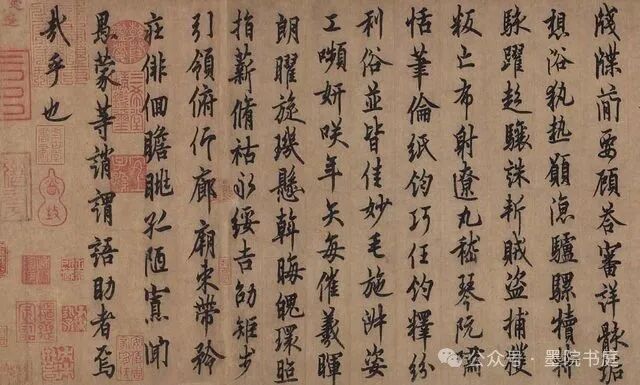 牋牒簡要顧答審詳骸垢
想浴執熱願凉驢騾犢特
駭躍超驤誅斬賊盜捕獲
叛亡布射遼丸嵇琴阮嘯
恬筆倫紙鈞巧任釣釋紛
利俗並皆佳妙毛施淑姿
工嚬妍咲年矢每催羲暉
朗曜旋璣懸斡晦魄環照
指薪脩祜永綏吉劭矩步
引領俯仰廊廟束帶矜
莊俳佪瞻眺孤陋寡聞
愚蒙等誚謂語助者焉
哉乎也
公众号·墨院书庭